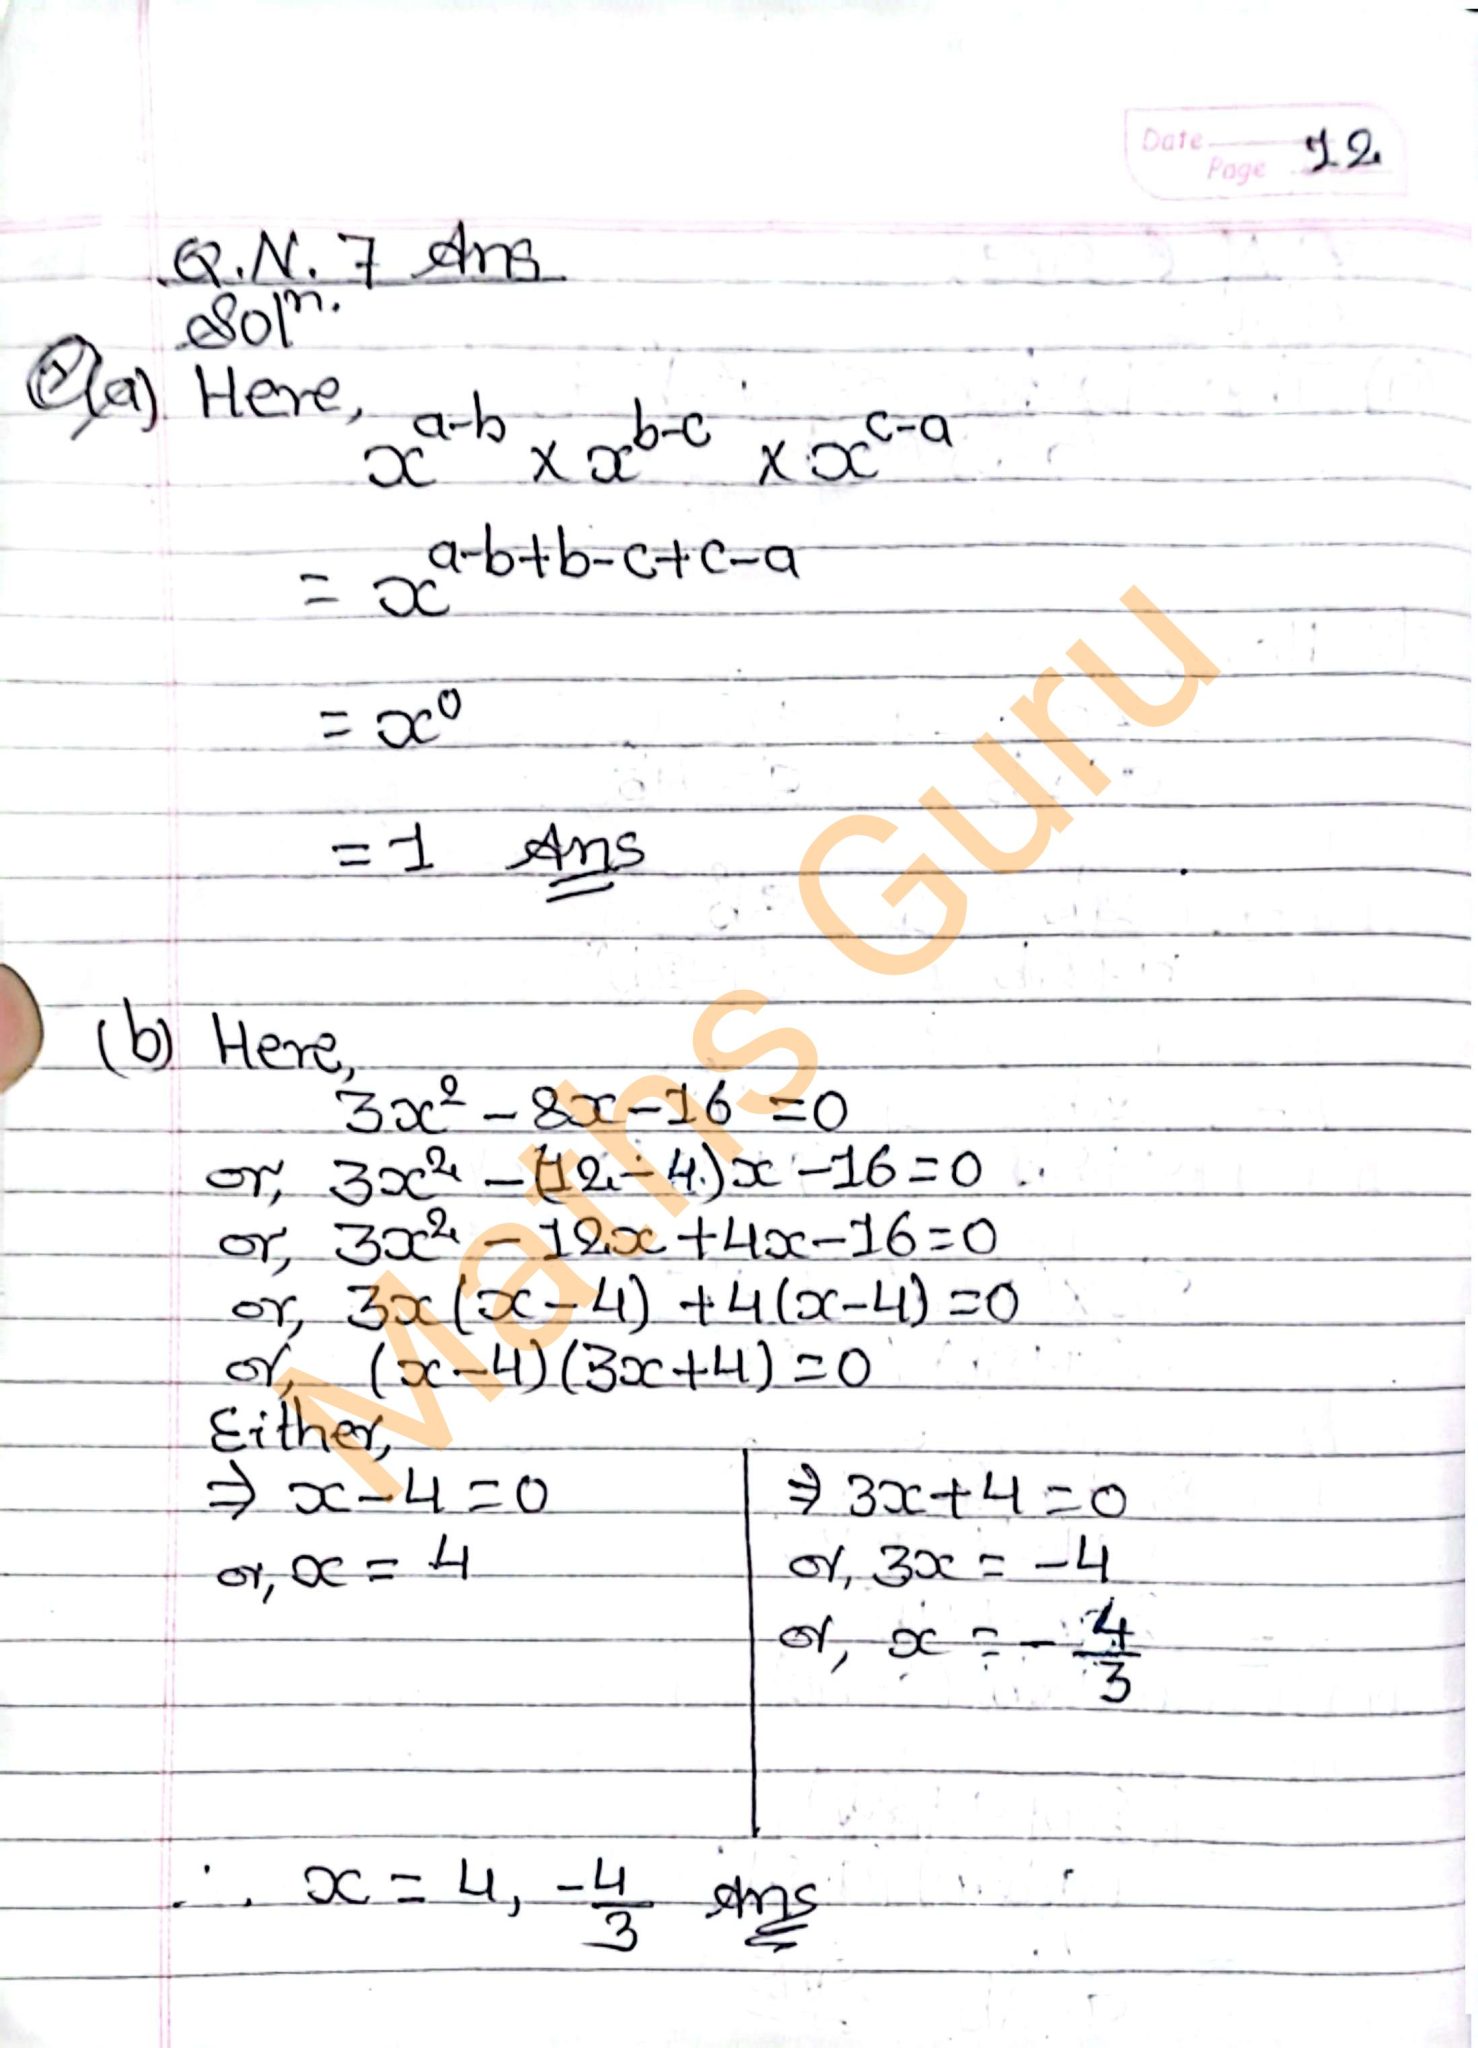 Date
Page 12
Q.N. 7 Ans
Solⁿ.
(a) Here,
x^(a-b) × x^(b-c) × x^(c-a)
= x^(a-b+b-c+c-a)
= x⁰
= 1 Ans
(b) Here,
3x² - 8x - 16 = 0
or, 3x² - (12 - 4)x - 16 = 0
or, 3x² - 12x + 4x - 16 = 0
or, 3x(x - 4) + 4(x - 4) = 0
or, (x - 4)(3x + 4) = 0
Either,
⇒ x - 4 = 0
or, x = 4
⇒ 3x + 4 = 0
or, 3x = -4
or, x = -4/3
∴ x = 4, -4/3 Ans
Maths Guru